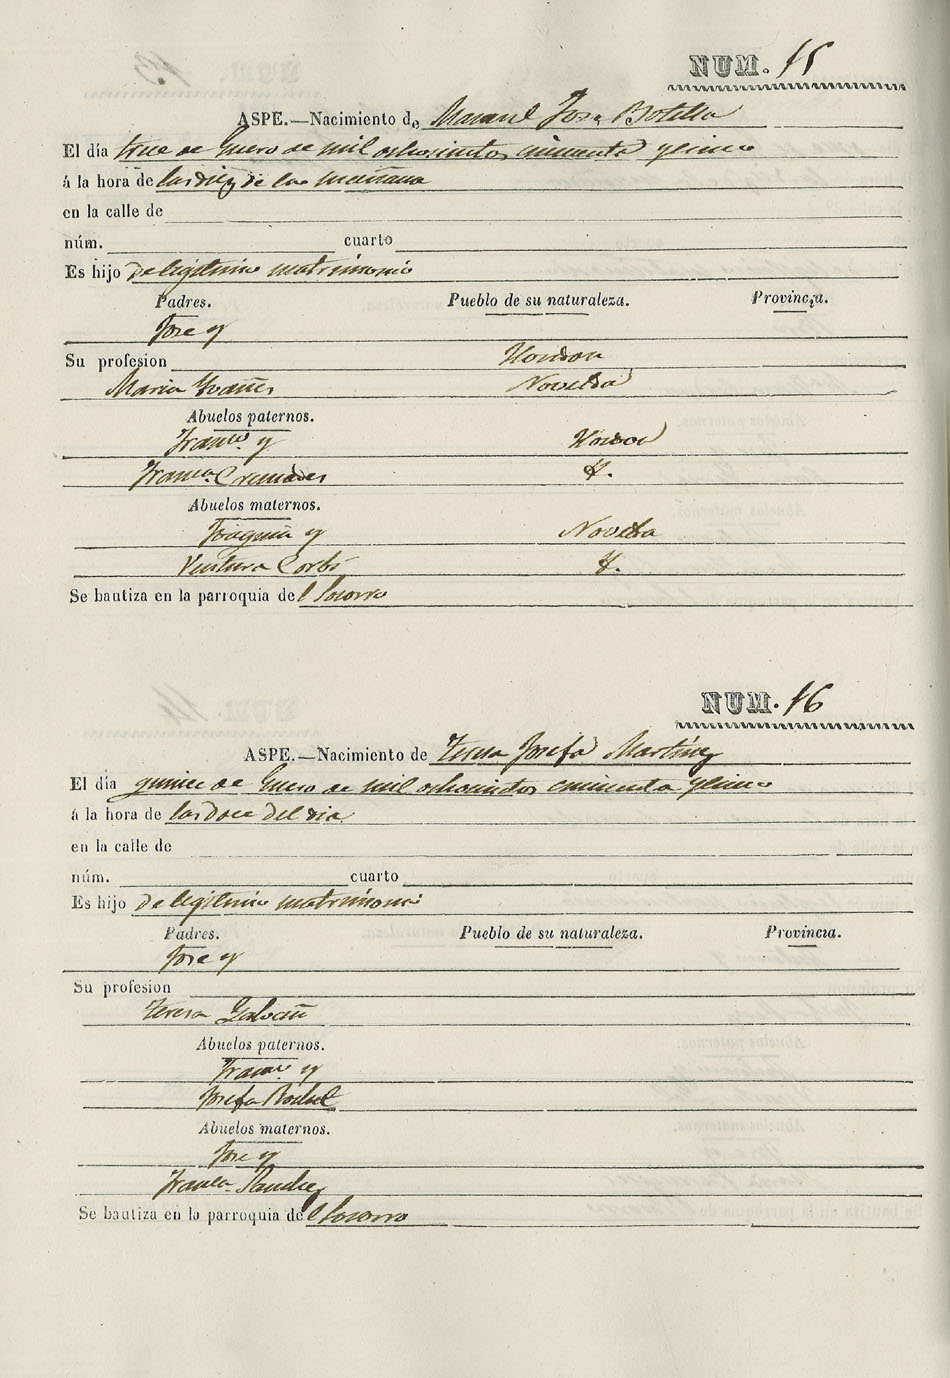 NUM. 15
ASPE.—Nacimiento de Manuel Jose Botella
El día trece de Enero de mil ochocientos cincuenta y cinco
á la hora de las diez de la mañana
en la calle de
núm. cuarto
Es hijo de legitimo matrimonio
Padres. Pueblo de su naturaleza. Provincia.
Jose y
Su profesion Hondon
Maria Yvañes Novelda
Abuelos paternos.
Franco. y Hondon
Franca. Cremades
Abuelos maternos.
Joaquin y Novelda
Ventura Corbi
Se bautiza en la parroquia del Socorro
NUM. 16
ASPE.—Nacimiento de Teresa Josefa Martinez
El día quince de Enero de mil ochocientos cincuenta y cinco
á la hora de las doce del dia
en la calle de
núm. cuarto
Es hijo de legitimo matrimonio
Padres. Pueblo de su naturaleza. Provincia.
Jose y
Su profesion
Teresa Galvañ
Abuelos paternos.
Franco. y
Josefa
Abuelos maternos.
Jose y
Franca. Sanchez
Se bautiza en la parroquia del Socorro